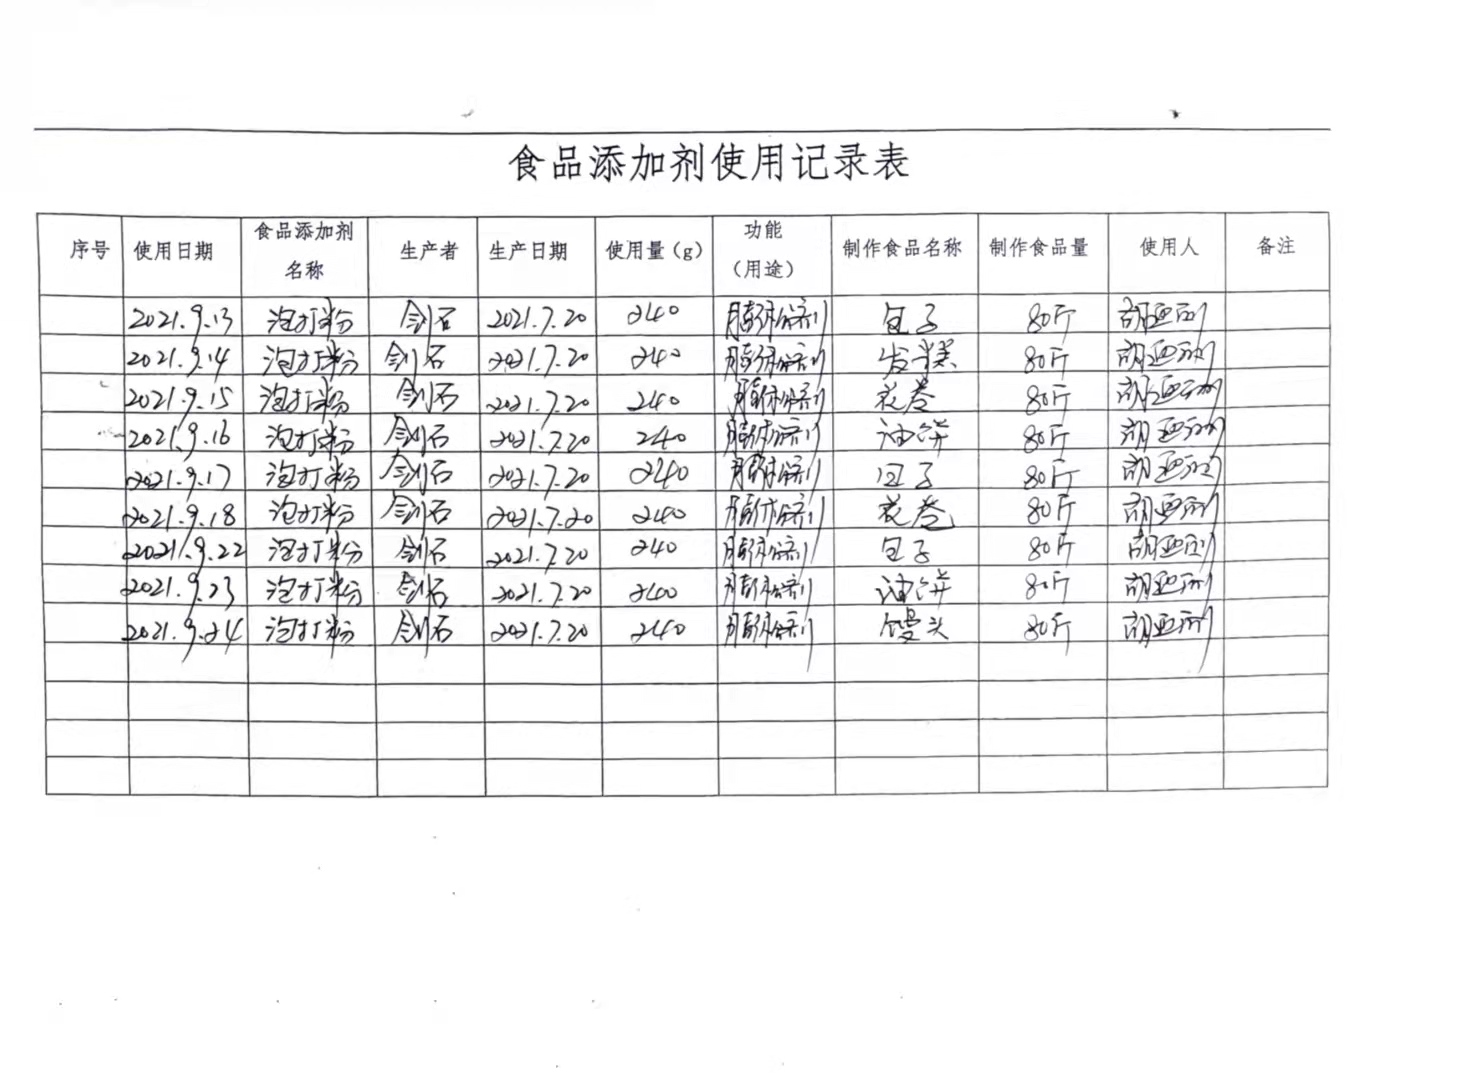 食品添加剂使用记录表
序号 使用日期 食品添加剂名称 生产者 生产日期 使用量(g) 功能（用途） 制作食品名称 制作食品量 使用人 备注
2021.9.13 泡打粉 剑石 2021.7.20 240 膨松剂 包子 80斤 胡亚丽
2021.9.14 泡打粉 剑石 2021.7.20 240 膨松剂 发糕 80斤 胡亚丽
2021.9.15 泡打粉 剑石 2021.7.20 240 膨松剂 花卷 80斤 胡亚丽
2021.9.16 泡打粉 剑石 2021.7.20 240 膨松剂 油饼 80斤 胡亚丽
2021.9.17 泡打粉 剑石 2021.7.20 240 膨松剂 包子 80斤 胡亚丽
2021.9.18 泡打粉 剑石 2021.7.20 240 膨松剂 花卷 80斤 胡亚丽
2021.9.22 泡打粉 剑石 2021.7.20 240 膨松剂 包子 80斤 胡亚丽
2021.9.23 泡打粉 剑石 2021.7.20 240 膨松剂 油饼 80斤 胡亚丽
2021.9.24 泡打粉 剑石 2021.7.20 240 膨松剂 馒头 80斤 胡亚丽